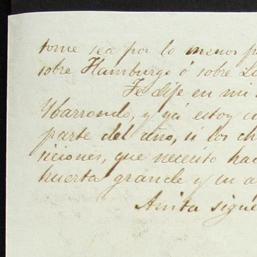 tome sea por lo menos p
sobre Hamburgo ó sobre L
Te dije en mi
Ybarrondo, y ya estoy c
parte del año, si los ch
niciones, que necesito ha
huerta grande y en a
Anita sigue